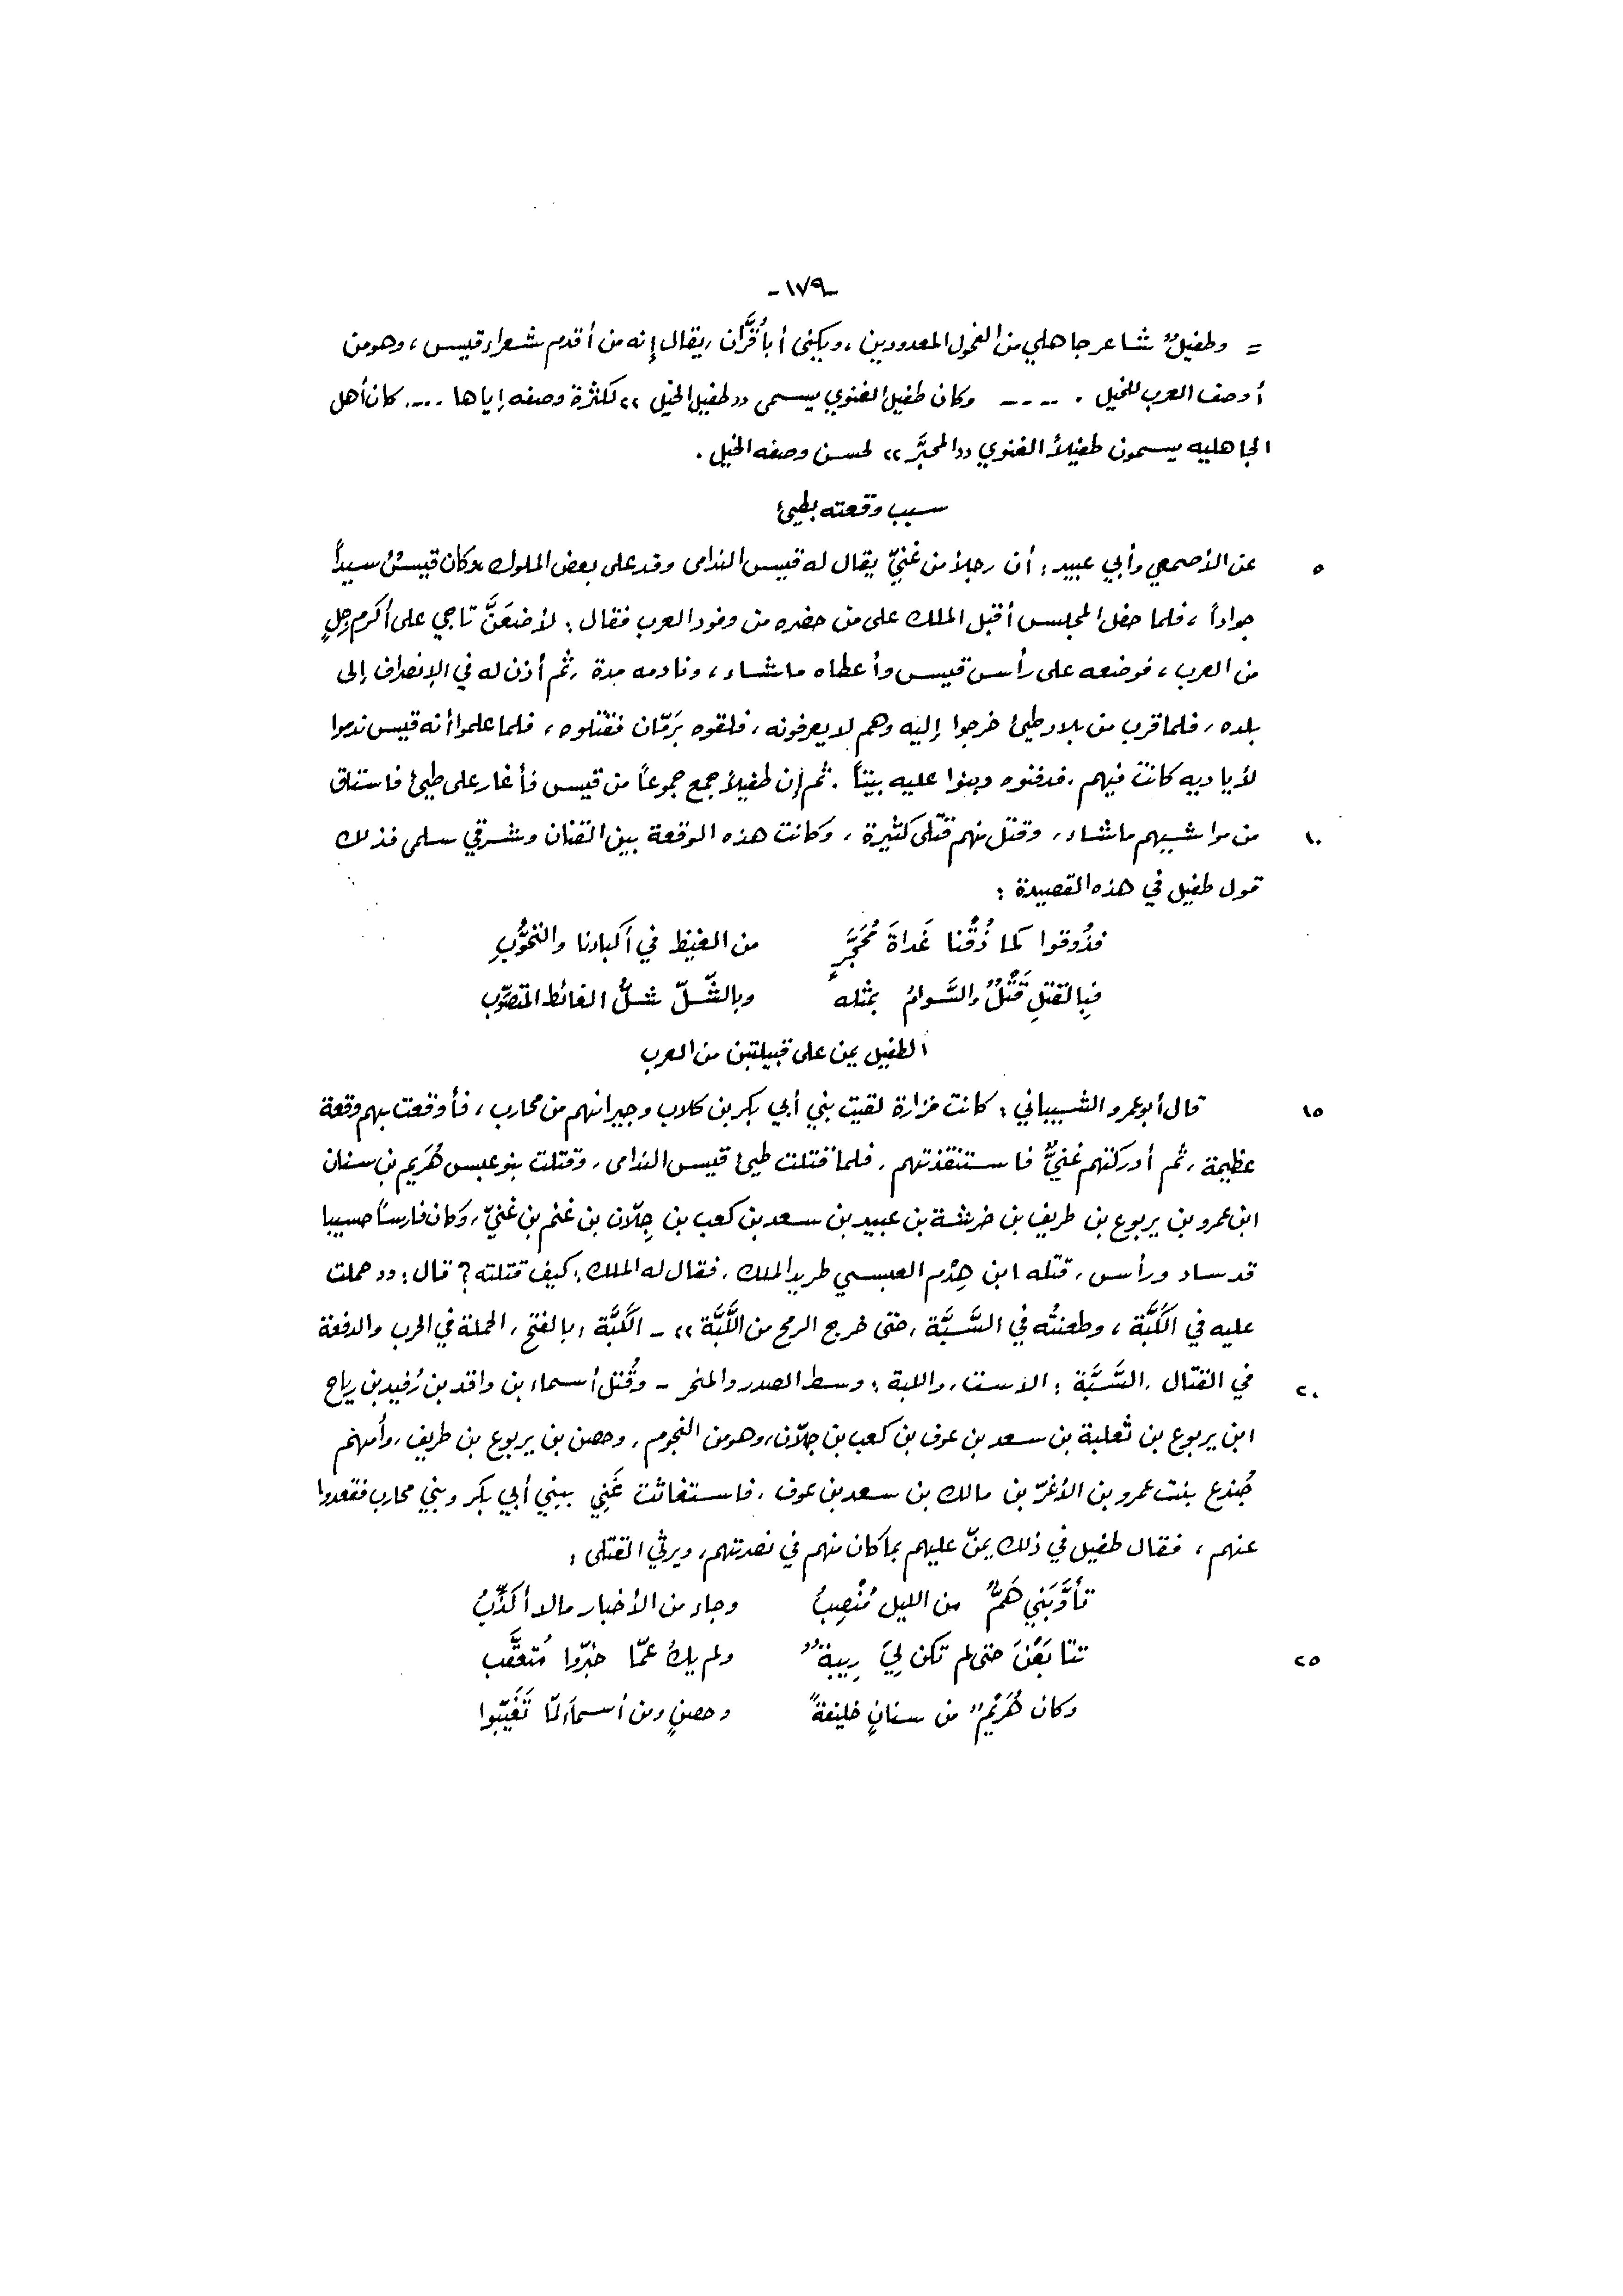 -١٧٩-
= وطفيلٌ شاعر جاهلي من الفحول المعدودين، ويكنى أبا قُرَّان، يقال إنه من أقدم شعراء قيس، وهو من
أوصف العرب للخيل . ---- وكان طفيل الغنوي يسمى «طفيل الخيل» لكثرة وصفه إياها .... كان أهل
الجاهليه يسمون طفيلاً الغنوي «المحبَّر» لحسن وصفه الخيل .
سبب وقعته بطيئ
٥ عن الأصمعي وأبي عبيد: أن رجلاً من غنيّ يقال له قيس الندامى وفد على بعض الملوك، وكان قيسٌ سيداً
جواداً، فلما حفل المجلس أقبل الملك على من حضره من وفود العرب فقال: لأضعَنَّ تاجي على أكرم رجلٍ
من العرب، فوضعه على رأس قيس وأعطاه ما شاء، ونادمه مدة، ثم أذن له في الإنصراف إلى
بلده، فلما قرب من بلاد طيئ خرجوا إليه وهم لا يعرفونه، فلقوه برَمّان فقتلوه، فلما علموا أنه قيس ندموا
لأياديه كانت فيهم، فدفنوه وبنوا عليه بيتاً . ثم إن طفيلاً جمع جموعاً من قيس فأغار على طيئ فاستاق
١٠ من مواشيهم ماشاء، وقتل منهم قتلى كثيرة، وكانت هذه الوقعة بين القنان وشرقي سلمى فذلك
قول طفيل في هذه القصيدة :
فذُوقوا كما ذُقْنا غَداةَ مُحَجَّرٍ من الغيظ في أكبادنا والتحوُّبِ
فبِالقتلِ قَتْلٌ والسَّوامُ بمثله وبالشّلّ شلُّ الغائط المتصوّب
الطفيل يمن على قبيلتين من العرب
١٥ قال أبو عمرو الشيباني: كانت فزارة لقيت بني أبي بكر بن كلاب وجيرانهم من محارب، فأوقعت بهم وقعة
عظيمة، ثم أدركتهم غنيٌّ فاستنقذتهم، فلما قتلت طيئ قيس الندامى، وقتلت بنو عبس هُرَيم بن سنان
ابن عمرو بن يربوع بن طريف بن خرشة بن عبيد بن سعد بن كعب بن جِلّان بن غنم بن غنيّ، وكان فارساً حسيبا
قد ساد ورأس، قتله ابن هِدْم العبسي طريد الملك، فقال له الملك: كيف قتلته؟ قال: «حملت
عليه في الكَبَّة، وطعنتُه في السَّبَّة، حتى خرج الرمح من اللَّبَّة» - الكَبَّة: بالفتح، الحملة في الحرب والدفعة
٢٠ في القتال، السَّبَّة: الاست، واللبة: وسط الصدر والمنحر - وقُتل أسماء بن واقد بن رُفيد بن رياح
ابن يربوع بن ثعلبة بن سعد بن عوف بن كعب بن جلّان، وهو من النجوم، وحصن بن يربوع بن طريف، وأمهم
جُندع بنت عمرو بن الأغرّ بن مالك بن سعد بن عوف، فاستغاثت غَنِي ببني أبي بكر وبني محارب فقعدوا
عنهم، فقال طفيل في ذلك يمنّ عليهم بما كان منهم في نصرتهم، ويرثي القتلى:
تأوَّبَنِي هَمٌّ من الليل مُنْصِبُ وجاء من الأخبار مالا أُكَذِّبُ
٢٥ تتابَعْنَ حتى لم تكن ليَ رِيبةٌ ولم يكُ عمّا خبّروا مُتعقَّب
وكان هُرَيْمٌ من سنانٍ خليفةً وحصنٍ ومن أسماءَ لمّا تَغَيَّبوا